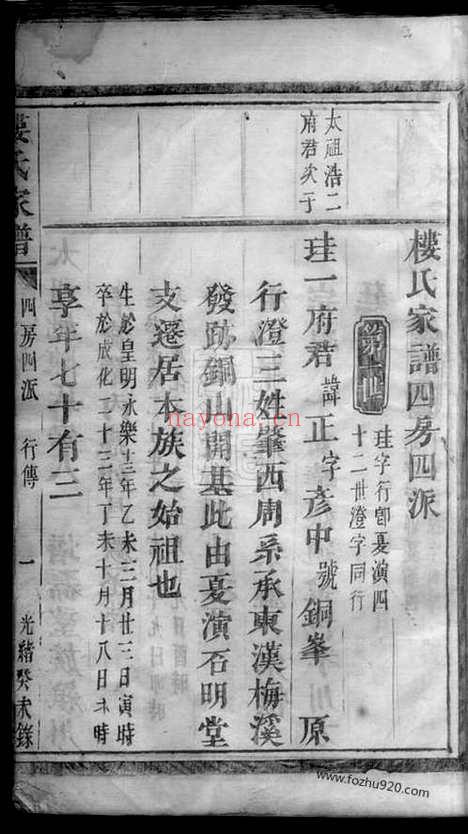 樓氏家譜四房四派
珪字行卽憂演四
十二世澄字同行
太祖浩二
府君次子
珪一府君諱正字彦中號銅峯原
行澄三姓肇西周系承東漢梅溪
發跡銅山開基此由憂演石明堂
支遷居本族之始祖也
生於皇明永樂十三年乙未二月廿三日寅時
卒於成化二十三年丁未十月十八日未時
享年七十有三
樓氏家譜
四房四派
行傳
一
光緖癸未錄
nayona.cn
www.fozhu920.com